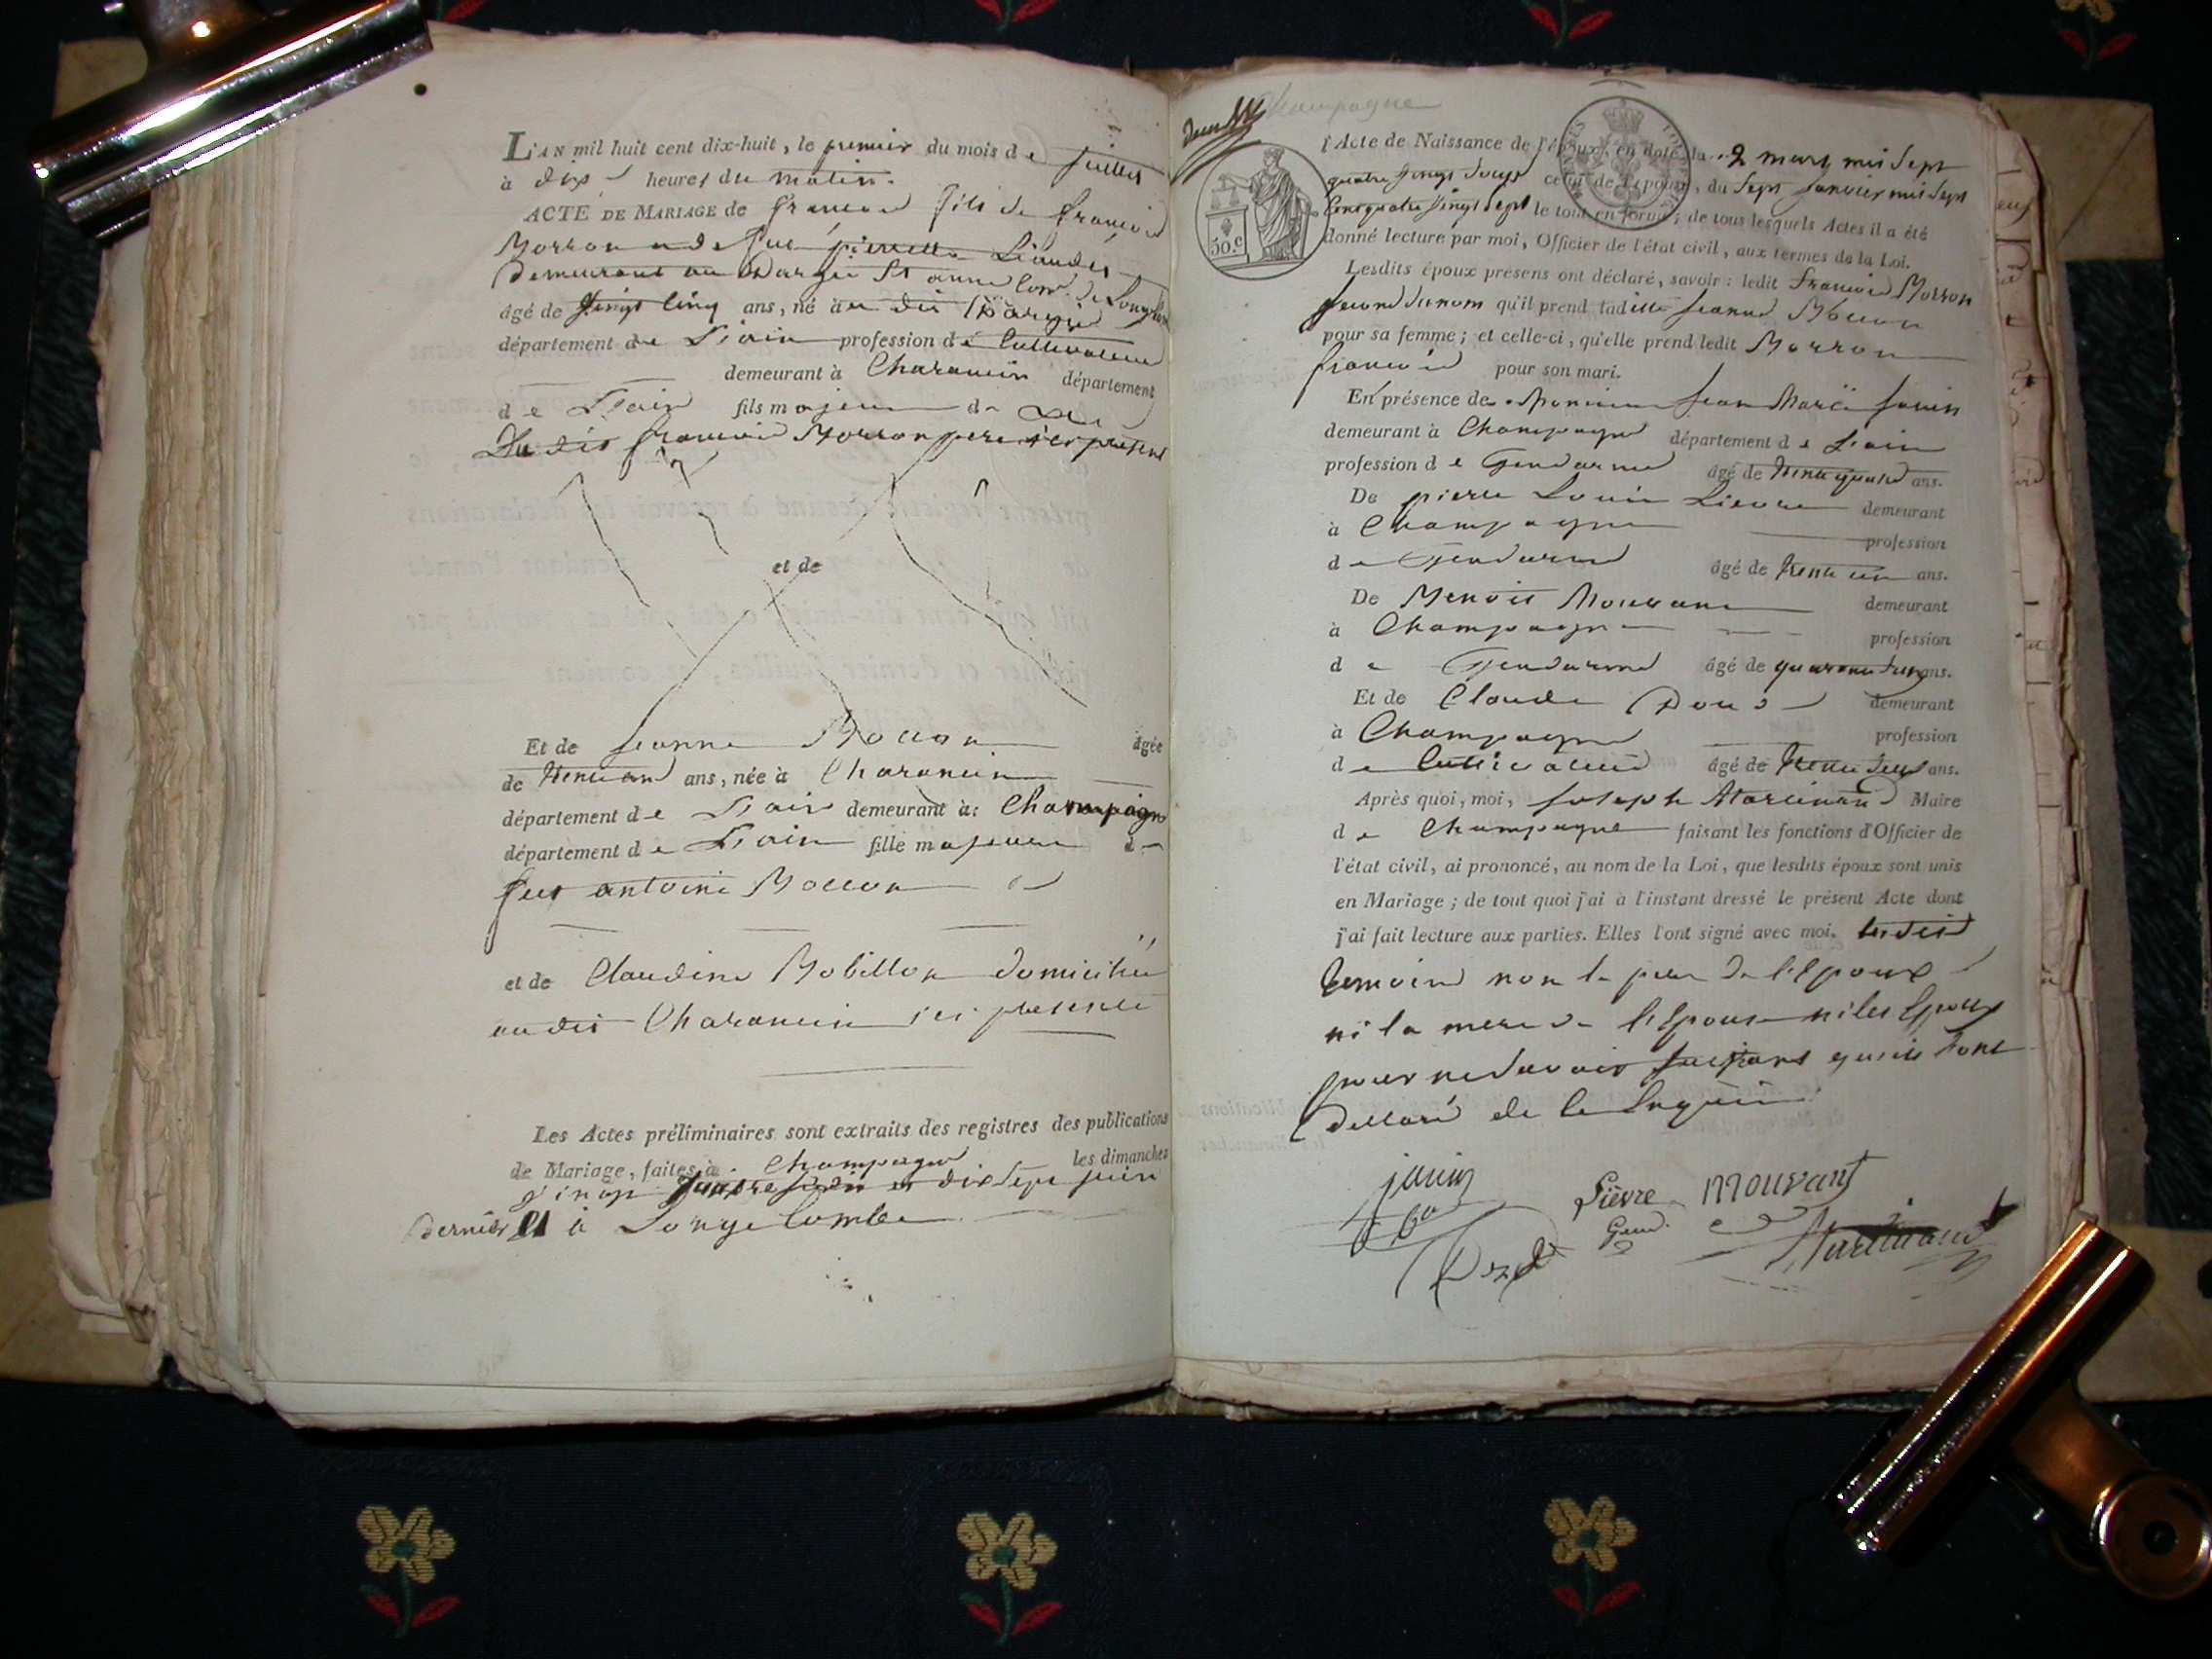 L'AN mil huit cent dix-huit, le premier du mois de juillet
à dix heures du matin.
ACTE DE MARIAGE de françois fils de françois
Morron et de feue pierrette
demeurant au St anne Com. de Longe
âgé de vingt cinq ans, né au dit
département de L'ain profession de Cultivateur
demeurant à Charancin département
de L'ain fils majeur de
Du dit françois Morron pere ici present
et de
Et de jeanne Moccon âgée
de trente un ans, née à Charancin
département de L'ain demeurant à: Champagne
département de L'ain fille majeure de
feu antoine Moccon
et de Claudine Mobillon domiciliée
au dit Charancin ici presente
Les Actes préliminaires sont extraits des registres des publications
de Mariage, faites à Champagne les dimanches
et dix Sept juin
dernier et à Longecombe
Champagne
l'Acte de Naissance de l'époux, en date du 2 mars mil Sept
quatre vingt douze celui de l'épouse, du Sept janvier mil Sept
Cent quatre vingt Sept le tout en forme; de tous lesquels Actes il a été
donné lecture par moi, Officier de l'état civil, aux termes de la Loi.
50.c
Lesdits époux présens ont déclaré, savoir: ledit françois Morron
second du nom qu'il prend laditte jeanne Moccon
pour sa femme; et celle-ci, qu'elle prend ledit Morron
françois pour son mari.
En présence de Monsieur jean Marie janin
demeurant à Champagne département de L'ain
profession de Gendarme âgé de trente quatre ans.
De pierre Louis Lievre demeurant
à Champagne profession
de Gendarme âgé de trente un ans.
De Menoit Mouvant demeurant
à Champagne profession
de Gendarme âgé de quarante ans.
Et de Claude demeurant
à Champagne profession
de Cultivateur âgé de trente deux ans.
Après quoi, moi, joseph Martinand Maire
de Champagne faisant les fonctions d'Officier de
l'état civil, ai prononcé, au nom de la Loi, que lesdits époux sont unis
en Mariage; de tout quoi j'ai à l'instant dressé le présent Acte dont
j'ai fait lecture aux parties. Elles l'ont signé avec moi. les dit
temoins non le pere de l'Epoux
ni la mere de l'Epouse ni les Epoux
pour ne savoir quils ont
declaré de ce Enquis
janin
Lièvre Mouvant
Gend.
Martinand